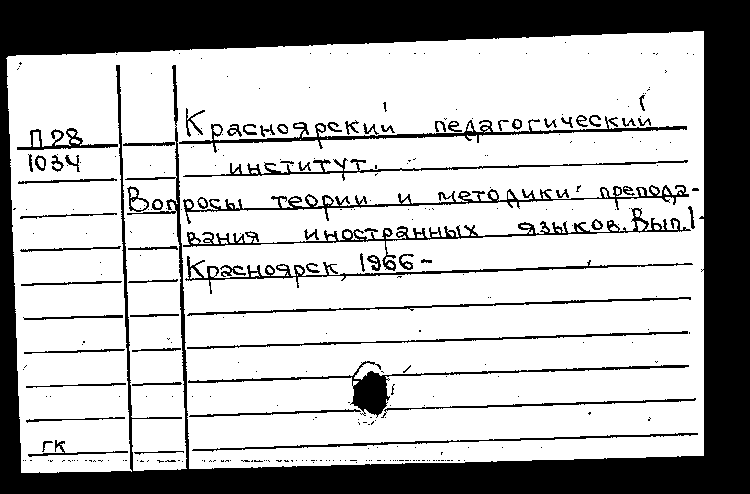 П28
1034
Красноярский педагогический
институт.
Вопросы теории и методики препода-
вания иностранных языков. Вып. 1-
Красноярск, 1966-
гк